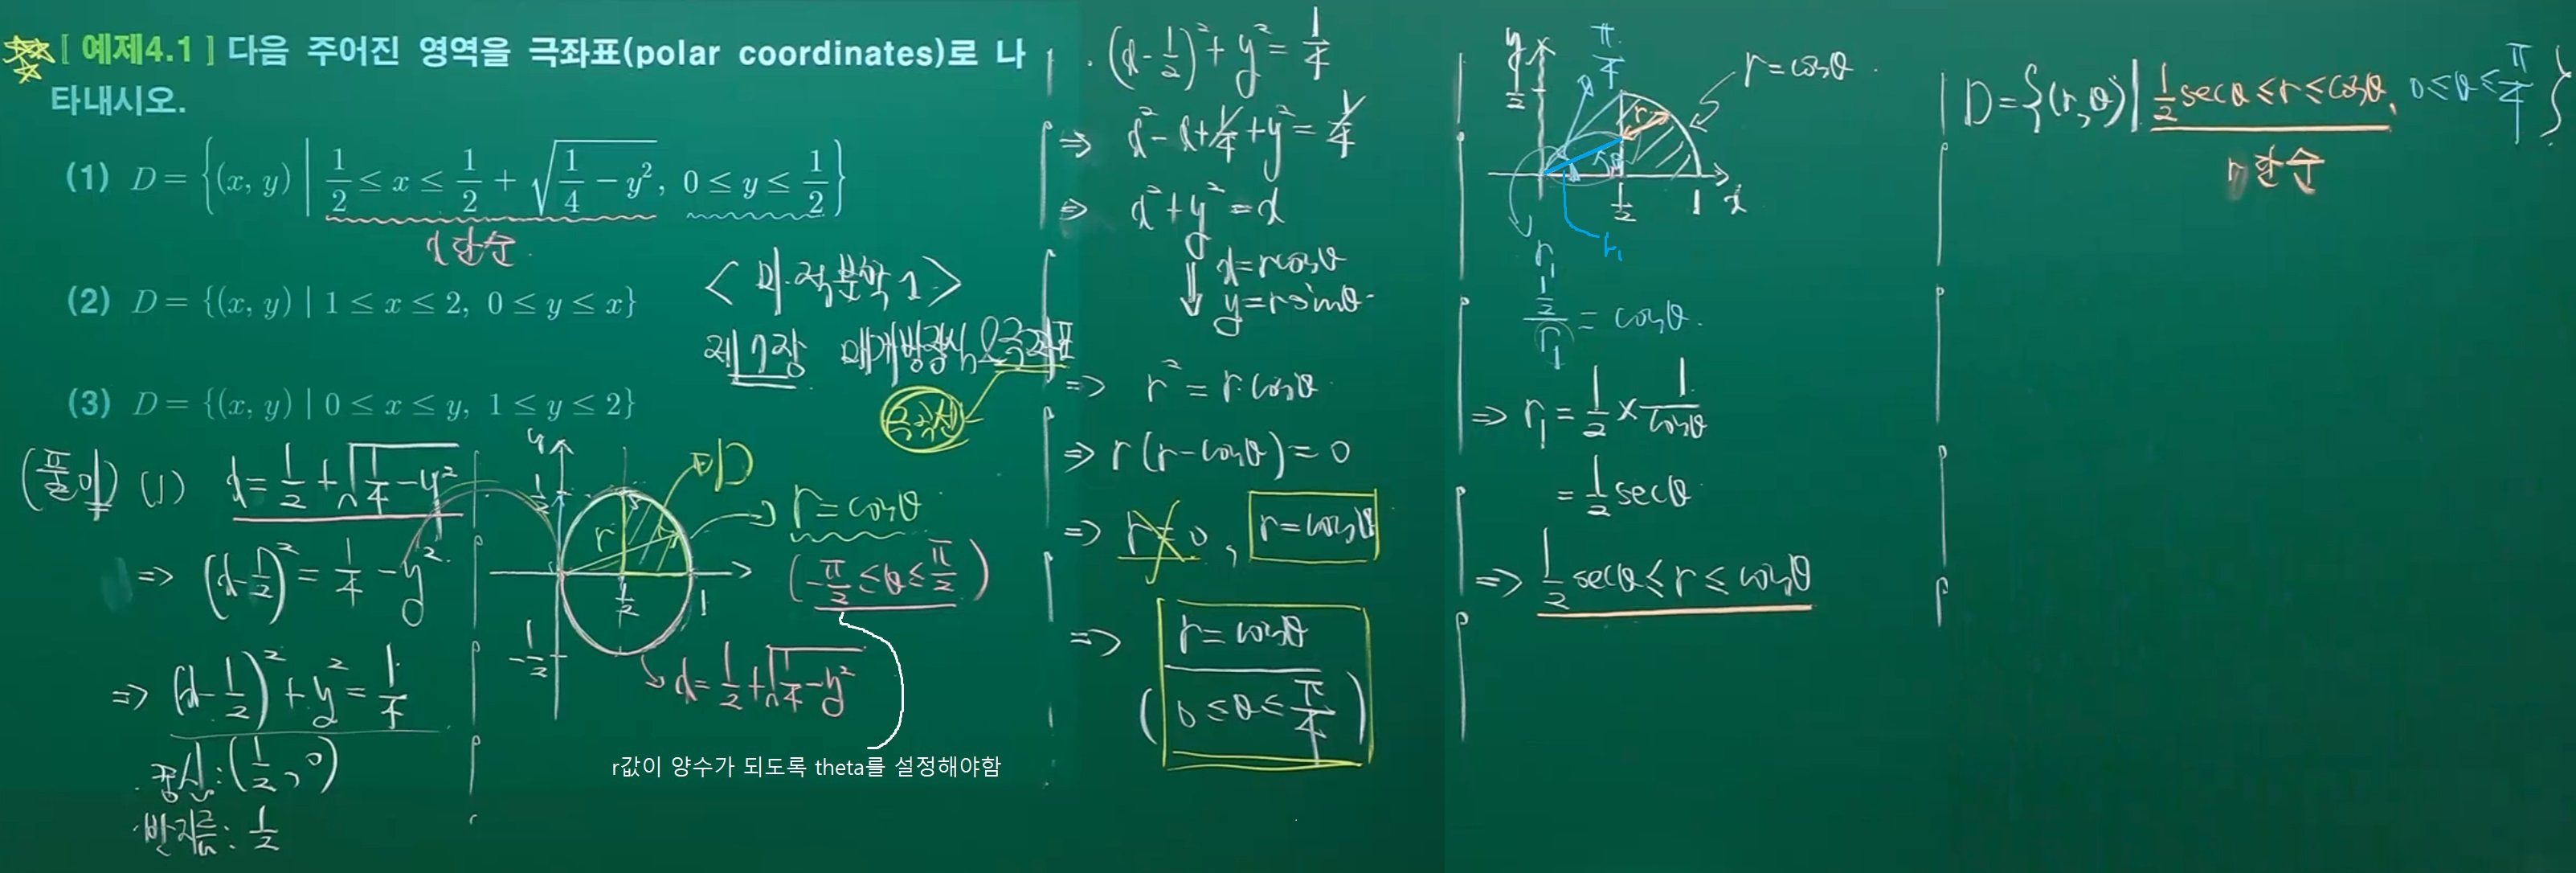 [ 예제4.1 ] 다음 주어진 영역을 극좌표(polar coordinates)로 나
타내시오.
(1) D = {(x, y) | 1/2 ≤ x ≤ 1/2 + √(1/4 − y²), 0 ≤ y ≤ 1/2}
x단순
(2) D = {(x, y) | 1 ≤ x ≤ 2, 0 ≤ y ≤ x}
<미적분학1>
제7장 매개방정식, 극좌표
(3) D = {(x, y) | 0 ≤ x ≤ y, 1 ≤ y ≤ 2}
(풀이) (1) x = 1/2 + √(1/4 − y²)
⇒ (x − 1/2)² = 1/4 − y²
⇒ (x − 1/2)² + y² = 1/4
중심: (1/2, 0)
반지름: 1/2
y
1/2
D
r
r = cosθ
(−π/2 ≤ θ ≤ π/2)
1/2
1
−1/2
x = 1/2 + √(1/4 − y²)
r값이 양수가 되도록 theta를 설정해야함
(x − 1/2)² + y² = 1/4
⇒ x² − x + 1/4 + y² = 1/4
⇒ x² + y² = x
x = rcosθ
y = rsinθ
⇒ r² = r cosθ
⇒ r(r − cosθ) = 0
⇒ r = 0, r = cosθ
⇒ r = cosθ
(0 ≤ θ ≤ π/4)
y
π/4
r = cosθ
1/2
r
θ
1/2
1
x
r₁
r₁
(1/2)/r₁ = cosθ
⇒ r₁ = 1/2 × 1/cosθ
= 1/2 secθ
⇒ 1/2 secθ ≤ r ≤ cosθ
D = {(r, θ) | 1/2 secθ ≤ r ≤ cosθ, 0 ≤ θ ≤ π/4}
r 단순